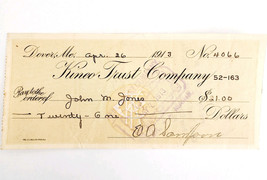 Dover, Mo. Apr. 26 1913 No. 4066
Kinco Trust Company 52-163
Pay to the order of John M. Jones $21.00
Twenty-One Dollars